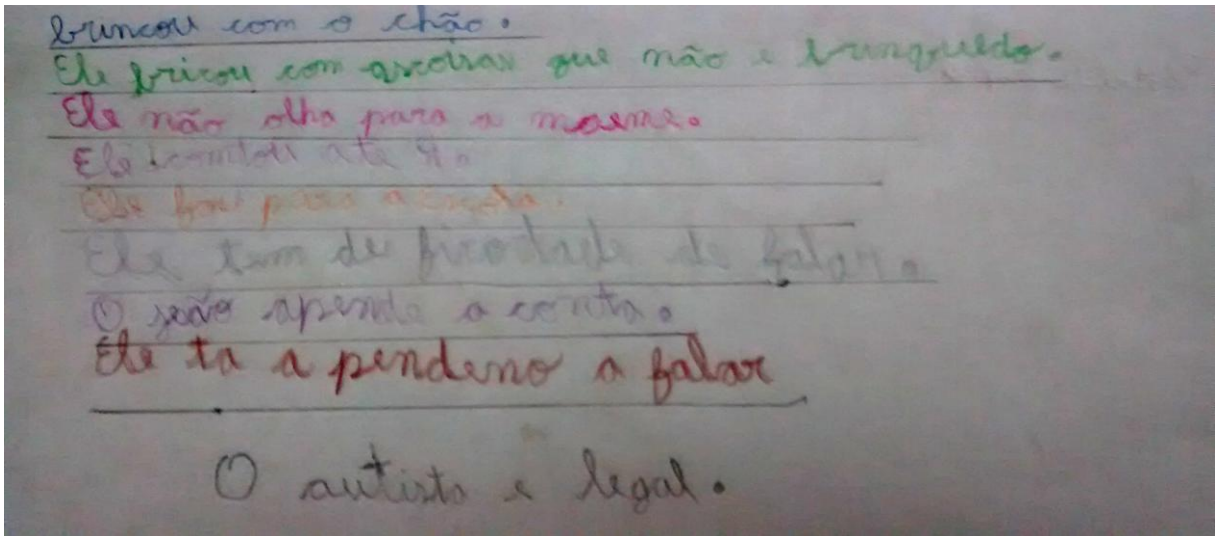 brincou com o chão.
Ele bricou com as coisas que não e brinquedo.
Ele não olha para a
Ele contou ate
Ele foi para a escola.
Ele tem de ficodade de falar.
O joão apende a conta.
Ele ta a pendeno a falar
O autista e legal.